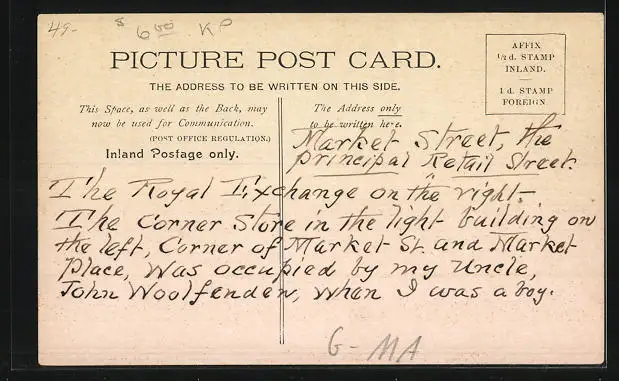 49- $ 6.00 KP
PICTURE POST CARD.
THE ADDRESS TO BE WRITTEN ON THIS SIDE.
AFFIX
1/2 d. STAMP
INLAND.
1 d. STAMP
FOREIGN.
This Space, as well as the Back, may
now be used for Communication.
(POST OFFICE REGULATION.)
Inland Postage only.
The Address only
to be written here.
Market Street, the
principal Retail Street.
The Royal Exchange on the right-
The Corner Store in the light building on
the left, Corner of Market St. and Market
Place, was occupied by my Uncle,
John Woolfenden, when I was a boy.
G- MA